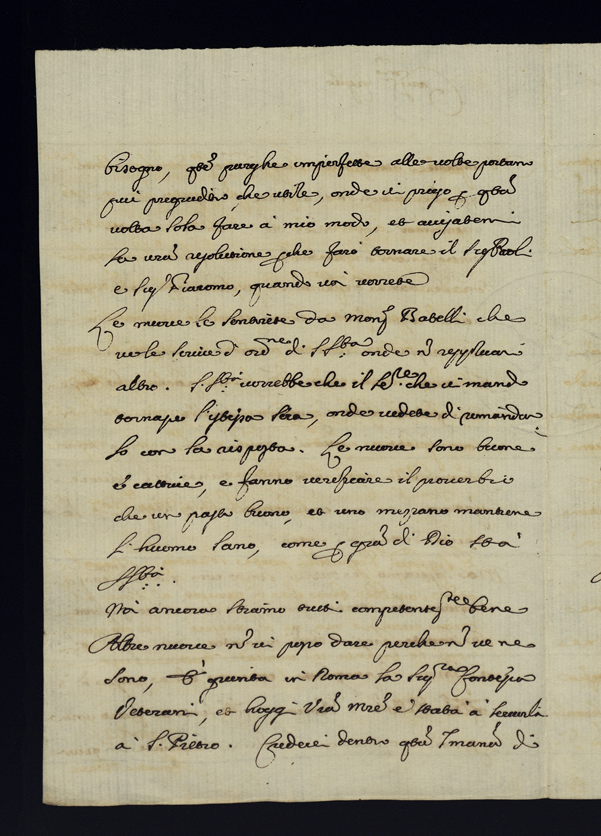 bisogno, q̃ste purghe imperfette alle volte portano
più pregiuditio, che utile, onde vi priego p q̃sta
volta sola fare à mio modo, et avisatemi
la vrã resolutione, che farò tornare il Sig.r Paol.
e Sig.r Giacomo, quando voi vorrete
Le nuove le sentirete da Mons.r Babelli che
ve le scrive d'ord.ne di S. S.tà onde nõ replicarò
altro. S. S.tà vorrebbe che il che vi mando
tornasse l'istessa sera, onde vedete di rimandar
lo con la risposta. Le nuove sono buone
e cattive, e fanno verificare il proverbio
che un pasto buono, et uno mezzano mantiene
l'huomo sano, come p gra di Dio stà
S. S.tà
Noi ancora stiamo tutti competentem.te bene
Altre nuove nõ vi posso dare perche nõ ve ne
sono, È giunta in Roma la Sig.ra Contessa
Veterani, et hoggi vrã mrẽ è stata à
à S. Pietro. Crederei dentro q̃sta 7mana di